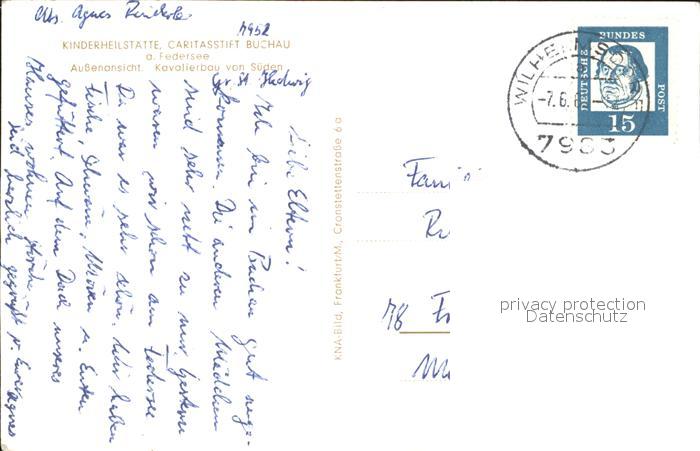 Abs. Agnes
7952
KINDERHEILSTÄTTE, CARITASSTIFT BUCHAU
a. Federsee
Außenansicht. Kavalierbau von Süden
Gr. St. Hedwig
Liebe Eltern!
Ich bin in Buchau gut ange-
kommen. Die anderen Mädchen
sind sehr nett zu mir. Gestern
waren wir schon am Federsee
Da war es sehr schön. Wir haben
Fische, Schwäne, Möven u. Enten
gefüttert. Auf dem Dach unseres
Hauses wohnen Störche.
Seid herzlich gegrüßt v. Eurer Agnes
KNA-Bild, Frankfurt/M, Cronstettenstraße 6 a
WILHELMSDO
-7.6.6
7983
DEUTSCHE
BUNDES
POST
15
Fami
R
78 F
privacy protection
Datenschutz